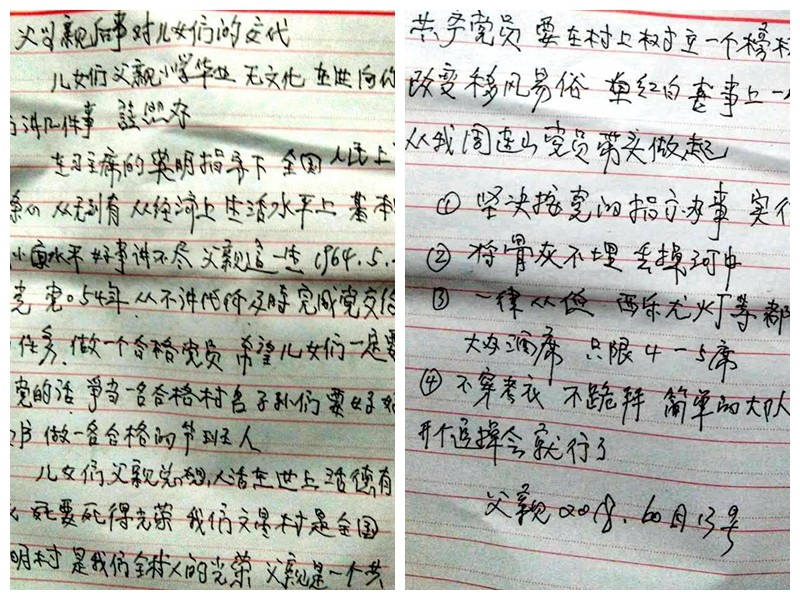 父亲后事对儿女们的交代
儿女们父亲小学毕业 无文化 在此向你
讲几件事 望照办
在习主席的英明指导下 全国人民上
从 从无到有 从经济上 生活水平上 基本
小康水平 好事讲不尽 父亲这一生 1964.5.
党 党。54年 从不讲代价 及时完成党交给
任务 做一个合格党员 希望儿女们一定要
党的话 争当一名合格村名 子孙们要好好
做一名合格的节班人
儿女们 父亲总想 人活在世上活德有
死要死得光荣 我们文星村是全国
明村 是我们全村人的光荣 父亲是一个共
共产党员 要在村上树立一个榜样
改变移风易俗 在红白喜事上一
从我周连山党员带头做起
① 坚决按党的指示办事 实行
② 将骨灰不埋 丢掉河中
③ 一律从俭 西乐尤火丁等都
大办酒席 只限4一5席
④ 不穿孝衣 不跪拜 简单的大队
开个追掉会就行了
父亲2018.6月13号